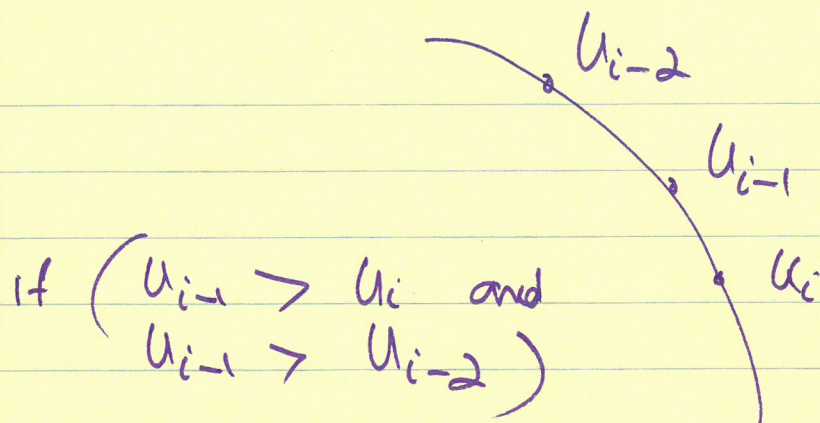 U_{i-2}
U_{i-1}
U_i
if (U_{i-1} > U_i and
U_{i-1} > U_{i-2})